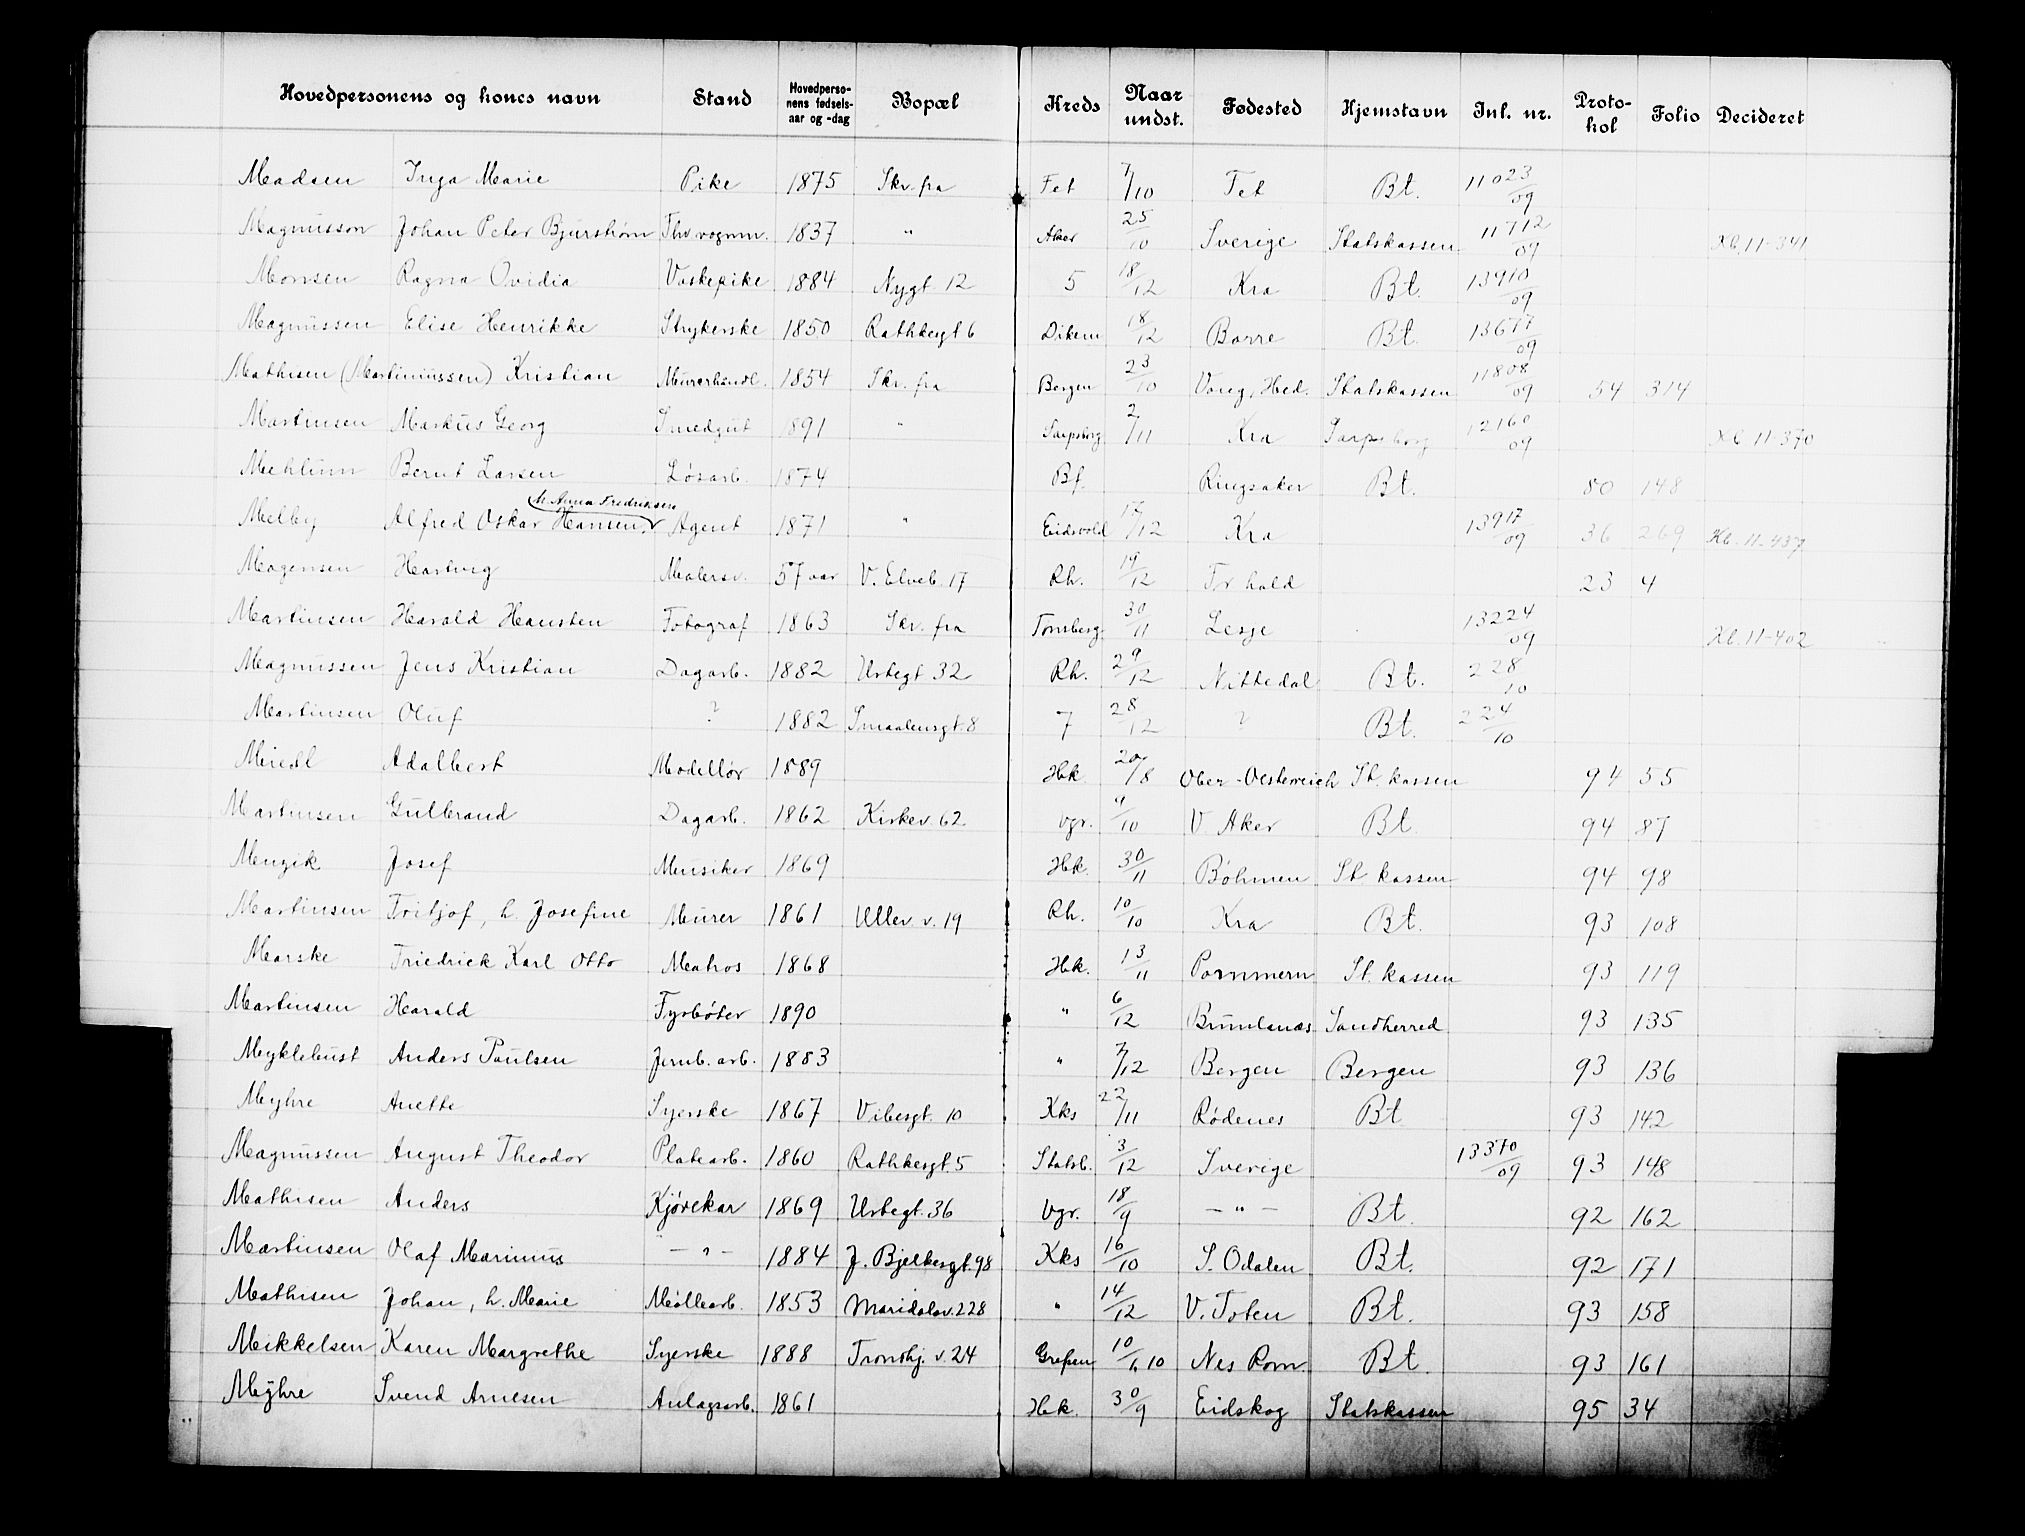 Hovedpersonens og kones navn Stand Hovedperso-nens fødsels-aar og -dag Bopæl Kreds Naar undst. Fødested Hjemstavn Inl. nr. Proto-kol Folio Decideret
Madsen Inga Marie Pike 1875 Skr. fra Fet 7/10 Fet Bt. 11023/09
Magnusson Johan Peter Bjurstrøm Fhv. vognm. 1837 " Aker 25/10 Sverige Statskassen 11712/09 Kb. 11-341
Monsen Ragna Ovidia Vaskepike 1884 Nygt. 12 5 18/12 Kra Bt. 13910/09
Magnussen Elise Henrikke Strykerske 1850 Rathkesgt 6 Dikem 18/12 Borre Bt. 13677/09
Mathisen (Martiniussen) Kristian Murerhandl. 1854 Skr. fra Bergen 23/10 Vang, Hed. Statskassen 11808/09 54 314
Martinsen Markus Georg Smedgut 1891 " Sarpsborg 2/11 Kra Sarpsborg 12160/09 Kb. 11-370
Mehlum Bernt Larsen Løsarb. 1874 Bf. Ringsaker Bt. 80 148
Melby Alfred Oskar Hansen, h. Anna Fredriksen Agent 1871 " Eidsvold 17/12 Kra 13917/09 36 269 Kb. 11-437
Magensen Hartvig Malersv. 57 aar V. Elveb. 17 Rh. 19/12 Fr.hald 23 4
Martinsen Harald Hansten Fotograf 1863 Skr. fra Tønsberg. 30/11 Lesje 13224/09 Kb. 11-402
Magnussen Jens Kristian Dagarb. 1882 Urtegt. 32 Rh. 29/12 Nittedal Bt. 228/10
Martinsen Oluf ? 1882 Smaalensgt. 8 7 28/12 ? Bt. 224/10
Miedl Adalbert Modellør 1889 Hk. 20/8 Ober-Oesterreich St. kassen 94 55
Martinsen Gulbrand Dagarb. 1862 Kirkev. 62 Vgr. 9/10 V. Aker Bt. 94 87
Menzik Josef Musiker 1869 Hk. 30/11 Bøhmen St. kassen 94 98
Martinsen Fritjof, h. Josefine Murer 1861 Ullev. v. 19 Rh. 10/10 Kra Bt. 93 108
Marske Friedrick Karl Otto Matros 1868 Hk. 13/11 Pommern St. kassen 93 119
Martinsen Harald Fyrbøter 1890 " 6/12 Brunlanæs Sandherred 93 135
Myklebust Anders Paulsen Jernb. arb. 1883 " 7/12 Bergen Bergen 93 136
Myhre Anette Syerske 1867 Vibesgt. 10 Kks 22/11 Rødenes Bt 93 142
Magnussen August Theodor Platearb. 1860 Rathkesgt. 5 Statsb. 3/12 Sverige 13370/09 93 148
Mathisen Anders Kjørekar 1869 Urtegt. 36 Vgr. 18/9 — " — Bt. 92 162
Martinsen Olaf Marinius — " — 1884 J. Bjelkesgt. 98 Kks 16/10 S. Odalen Bt. 92 171
Mathisen Johan, h. Marie Møllearb. 1853 Maridalsv. 228 " 14/12 V. Toten Bt. 93 158
Mikkelsen Karen Margrethe Syerske 1888 Trondhj. v. 24 Grefsen 10/1 10 Nes Rom. Bt. 93 161
Myhre Svend Arnesen Anlægsarb. 1861 Hk. 30/9 Eidskog Statskassen 95 34